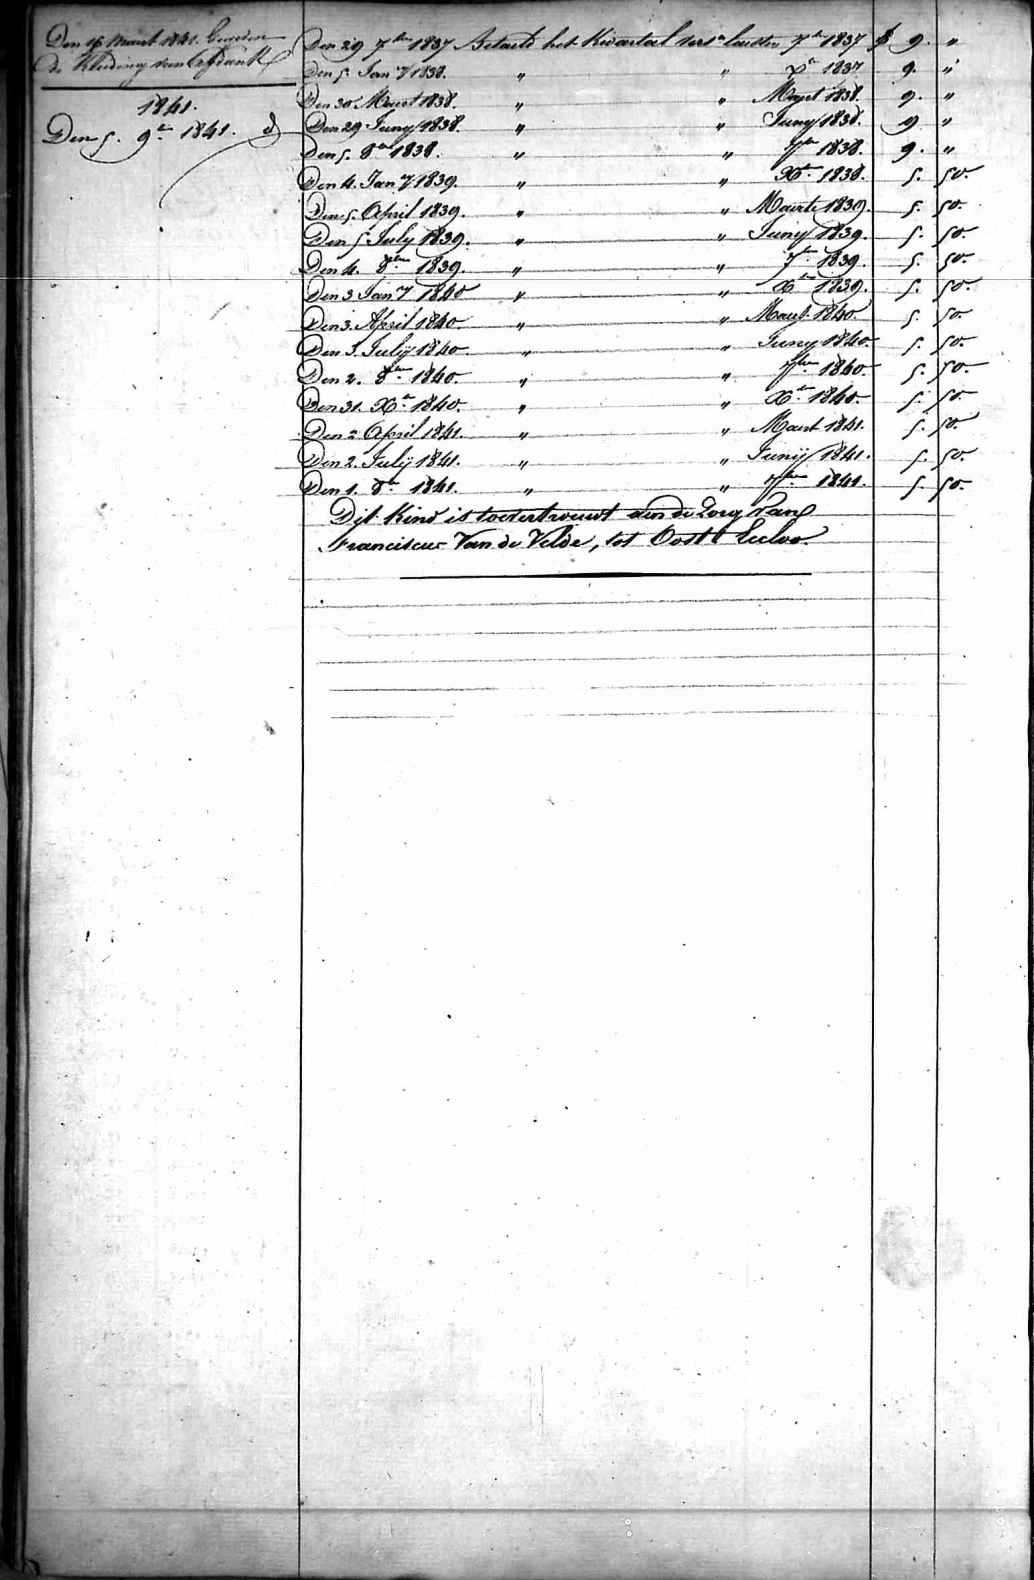 Den 15 Maart 1841.
de Kleeding van Afdank
1841.
Den 5. 9re 1841. d
Den 29 7bre 1837 Betaeld het Kwartael verslenden 7re 1837 f 9. "
Den 5. Jany 1838. " " Xre 1837 9. "
Den 30 Maert 1838. " " Maert 1838. 9. "
Den 29 Juny 1838. " " Juny 1838. 9 "
Den 5. 8re 1838. " " 7bre 1838. 9. "
Den 4. Jany 1839. " " Xre 1838. 5. 50.
Den 5. April 1839. " " Maerte 1839. 5. 50.
Den 5 July 1839. " " Juny 1839. 5. 50.
Den 4. 8bre 1839. " " 7bre 1839. 5. 50.
Den 3 Jany 1840 " " Xbre 1839. 5. 50.
Den 3. April 1840. " " Maert 1840. 5. 50.
Den 3. July 1840. " " Juny 1840. 5. 50.
Den 2. 8bre 1840. " " 7bre 1840. 5. 50.
Den 31. Xre 1840. " " Xre 1840. 5. 50.
Den 2 April 1841. " " Maert 1841. 5. 50.
Den 2. July 1841. " " Juny 1841. 5. 50.
Den 1. 8re 1841. " " 7bre 1841. 5. 50.
Dit Kind is toevertrouwt aen de Zorg van
Franciscus Van de Velde, tot Oost Eecloo.